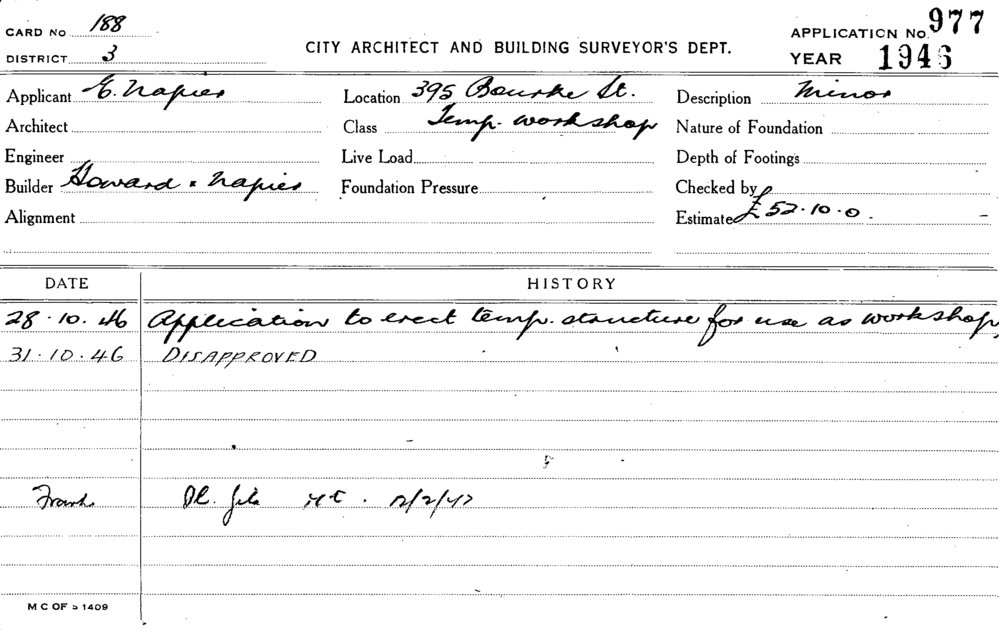 CARD NO 188
DISTRICT 3
CITY ARCHITECT AND BUILDING SURVEYOR'S DEPT.
APPLICATION NO. 977
YEAR 1946
Applicant E. Napier Location 395 Bourke St. Description Minor
Architect Class Temp. workshop Nature of Foundation
Engineer Live Load Depth of Footings
Builder Howard & Napier Foundation Pressure Checked by
Alignment Estimate £52.10.0.
DATE HISTORY
28.10.46 Application to erect temp. structure for use as workshop,
31.10.46 DISAPPROVED
Frank Pl. file 12/2/47
M C OF S 1409